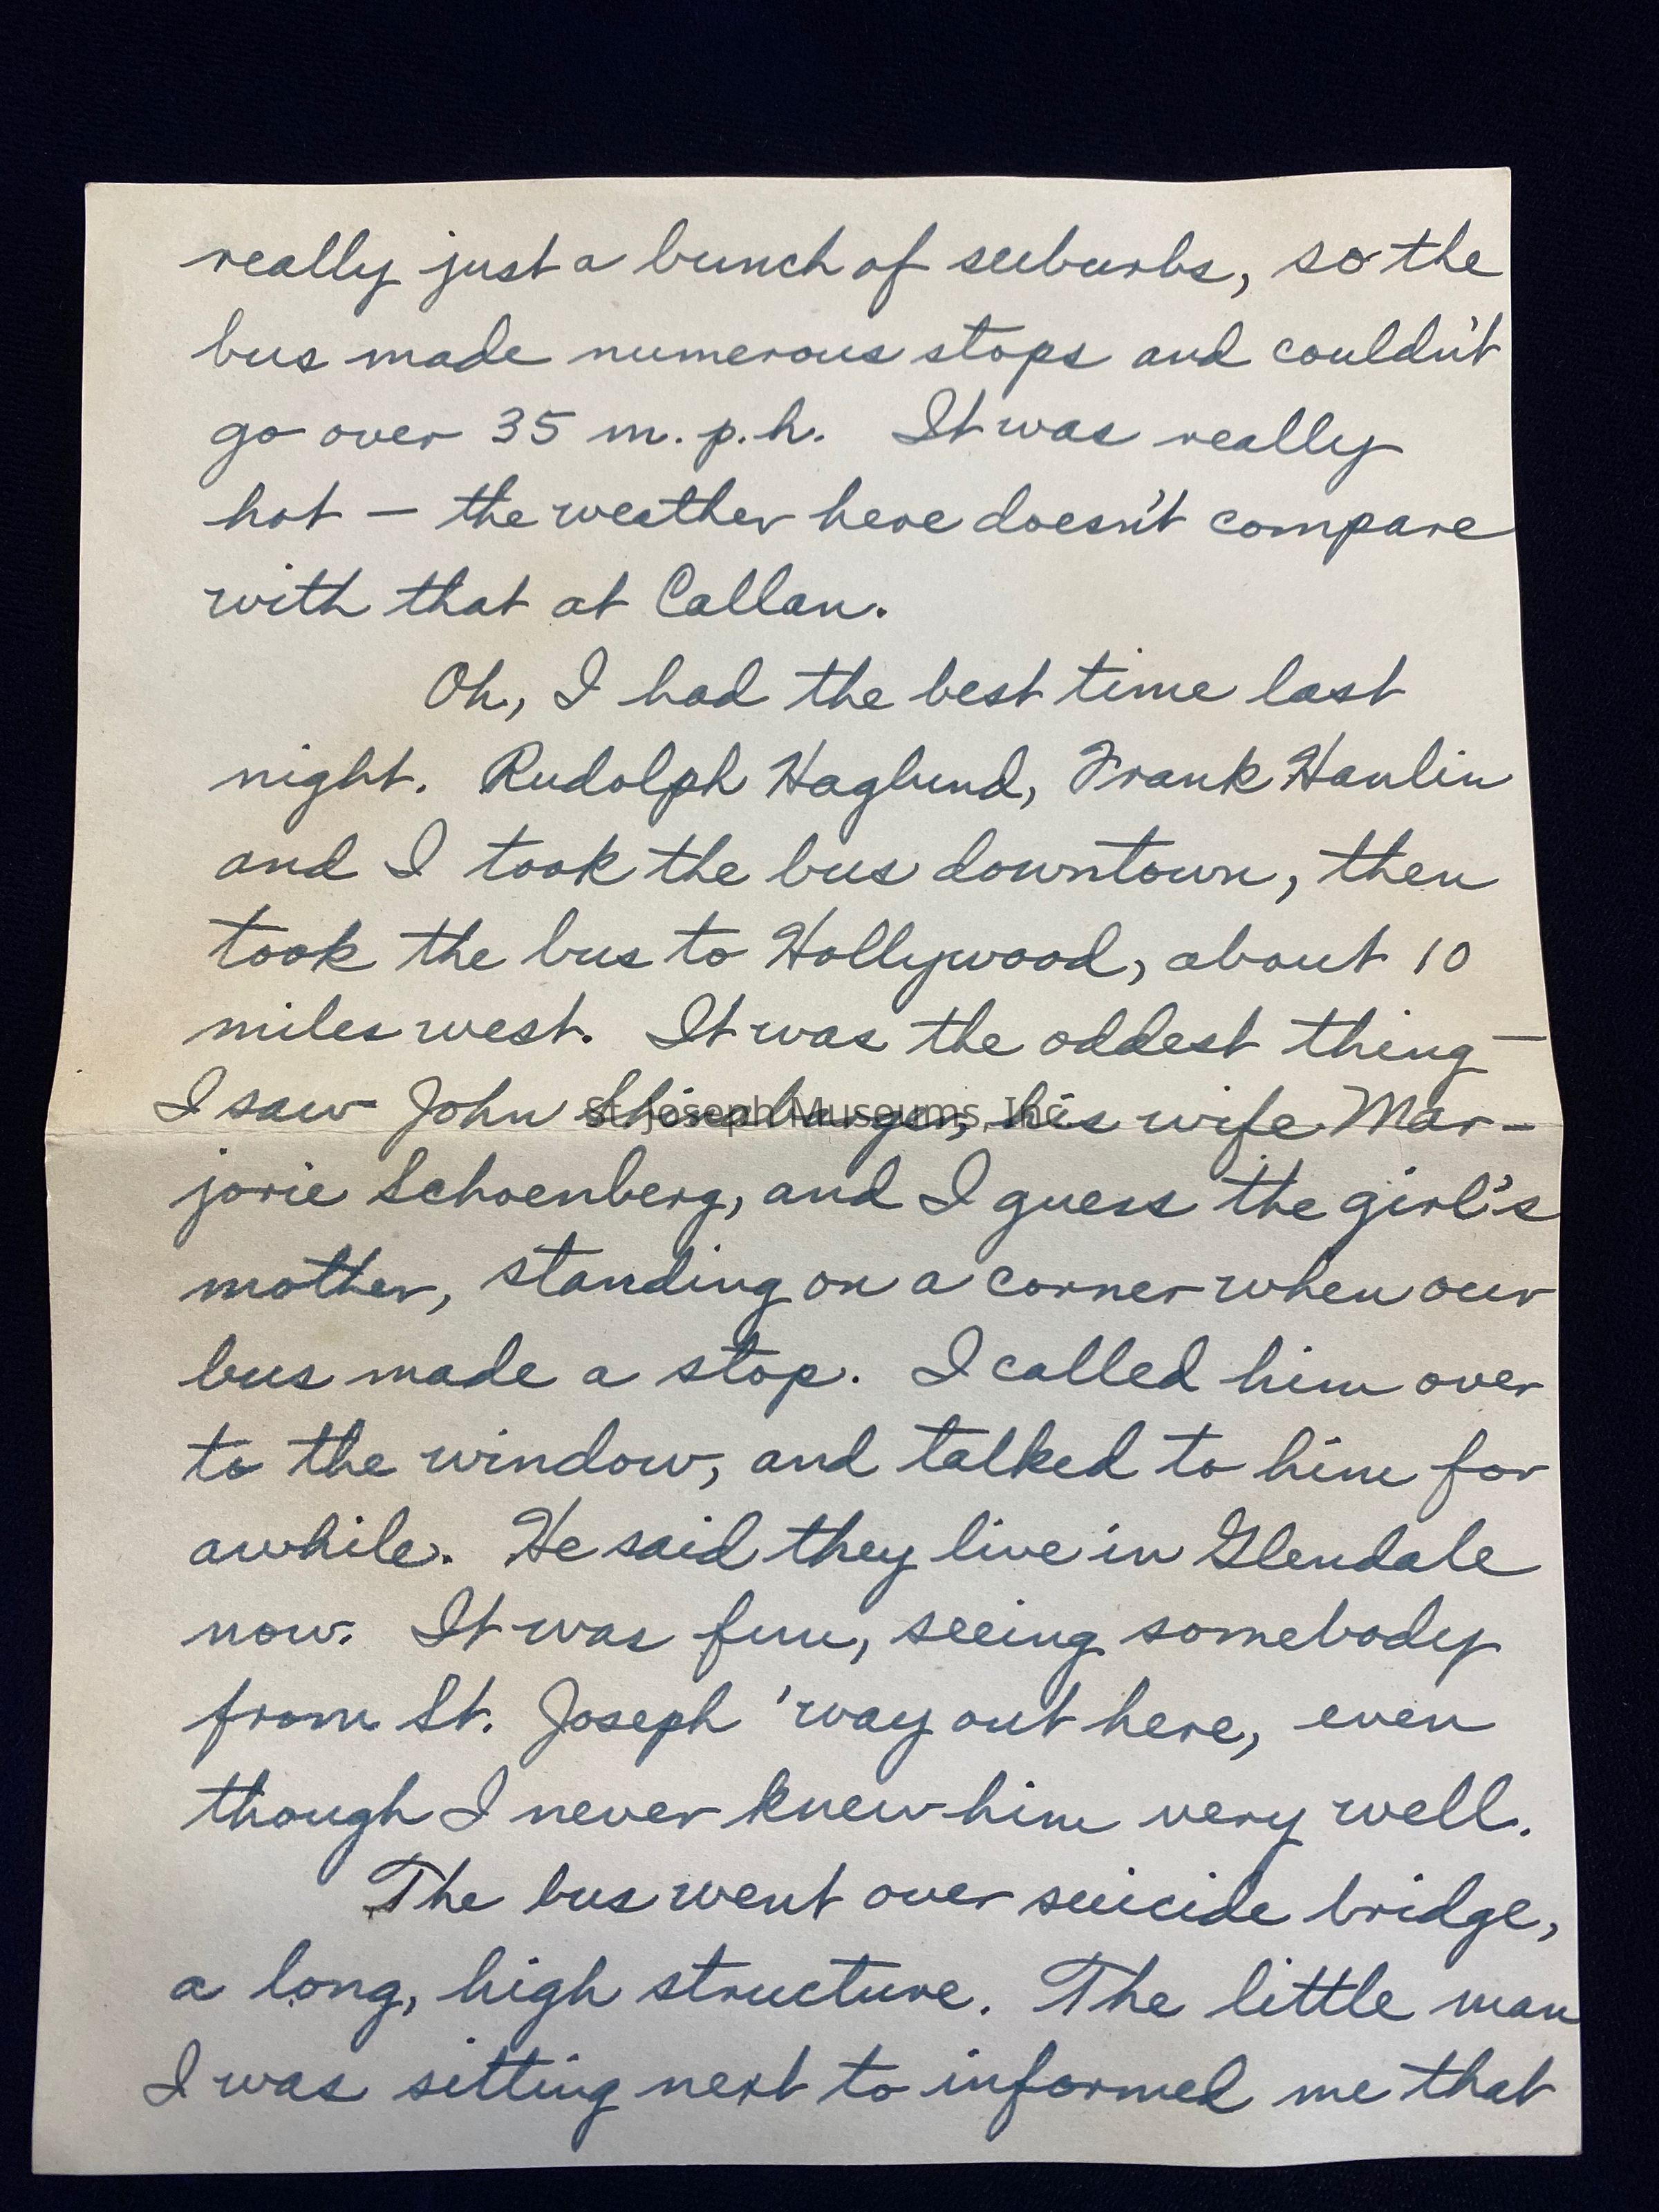 really just a bunch of suburbs, so the
bus made numerous stops and couldn't
go over 35 m.p.h. It was really
hot — the weather here doesn't compare
with that at Callan.
Oh, I had the best time last
night. Rudolph Haglund, Frank Hanlin
and I took the bus downtown, then
took the bus to Hollywood, about 10
miles west. It was the oddest thing —
I saw John his wife Mar-
St. Joseph Museums, Inc.
jorie Schoenberg, and I guess the girl's
mother, standing on a corner when our
bus made a stop. I called him over
to the window, and talked to him for
awhile. He said they live in Glendale
now. It was fun, seeing somebody
from St. Joseph 'way out here, even
though I never knew him very well.
The bus went over suicide bridge,
a long, high structure. The little man
I was sitting next to informed me that